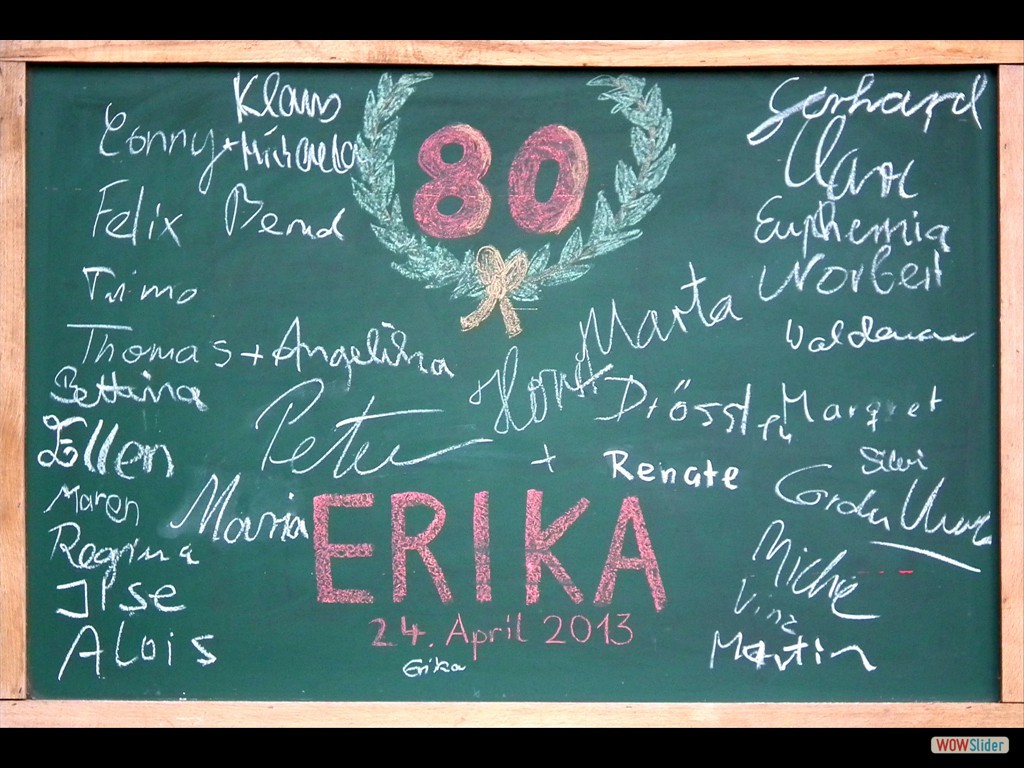 Klaus
Conny + Michaela
80
Gerhard
Felix Bernd
Euphemia
Timo
Norbert
Thomas + Angelika
Horst Marta
Waldemar
Bettina
Peter
Margret
Ellen
+ Renate
Silvi
Maren
Maria
ERIKA
Regina
Ilse
24. April 2013
Alois
Erika
Martin
WOWSlider